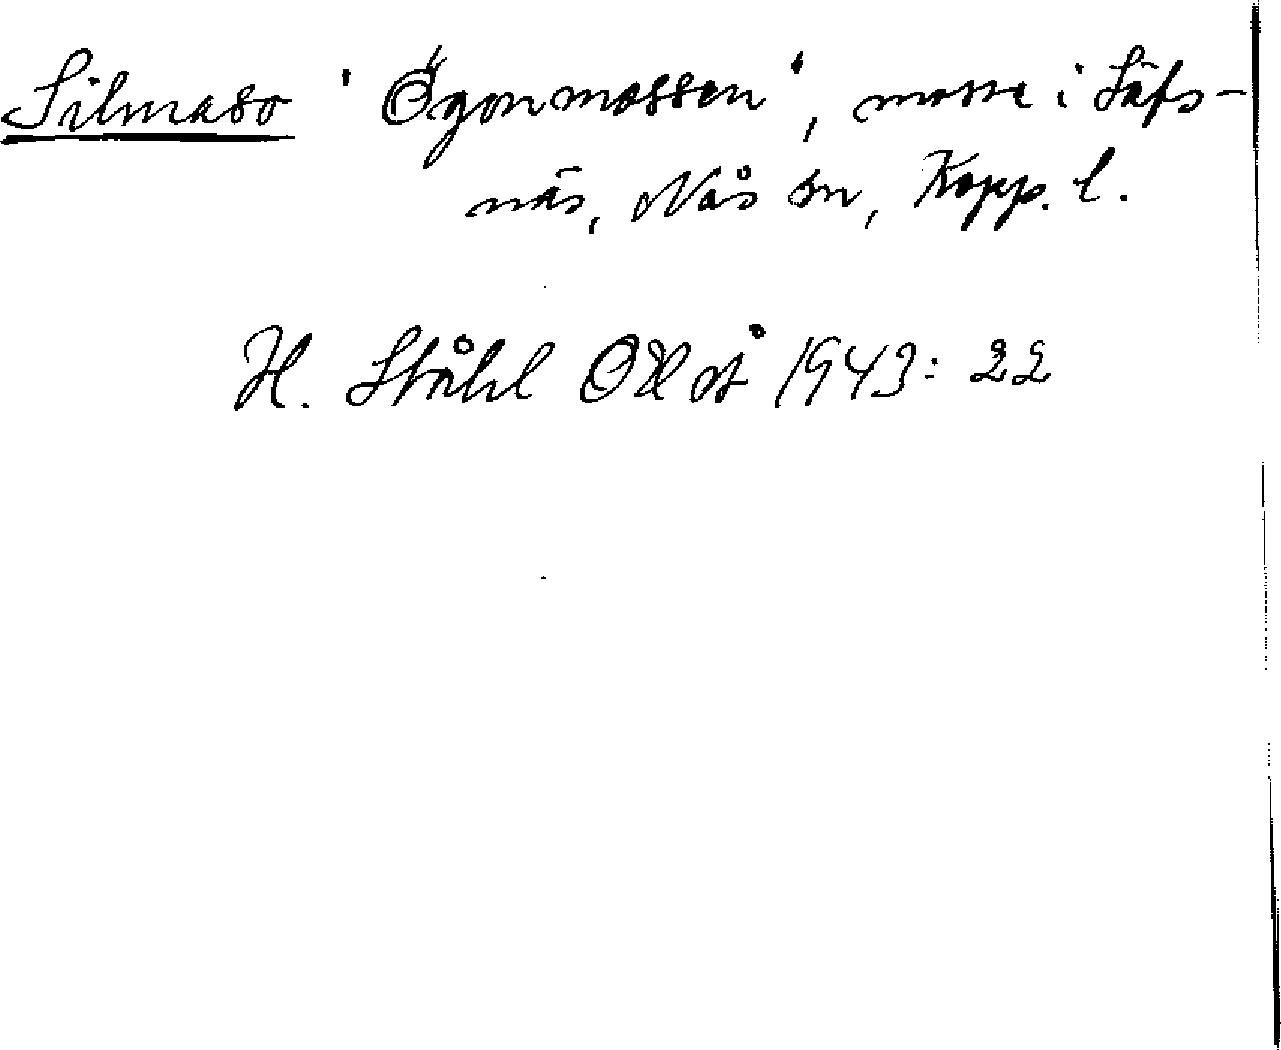 Silmaso 'Ögonmossen', mosse i Säfs-
näs, Nås sn, Kopp. l.
H. Ståhl OUÅ 1943: 22